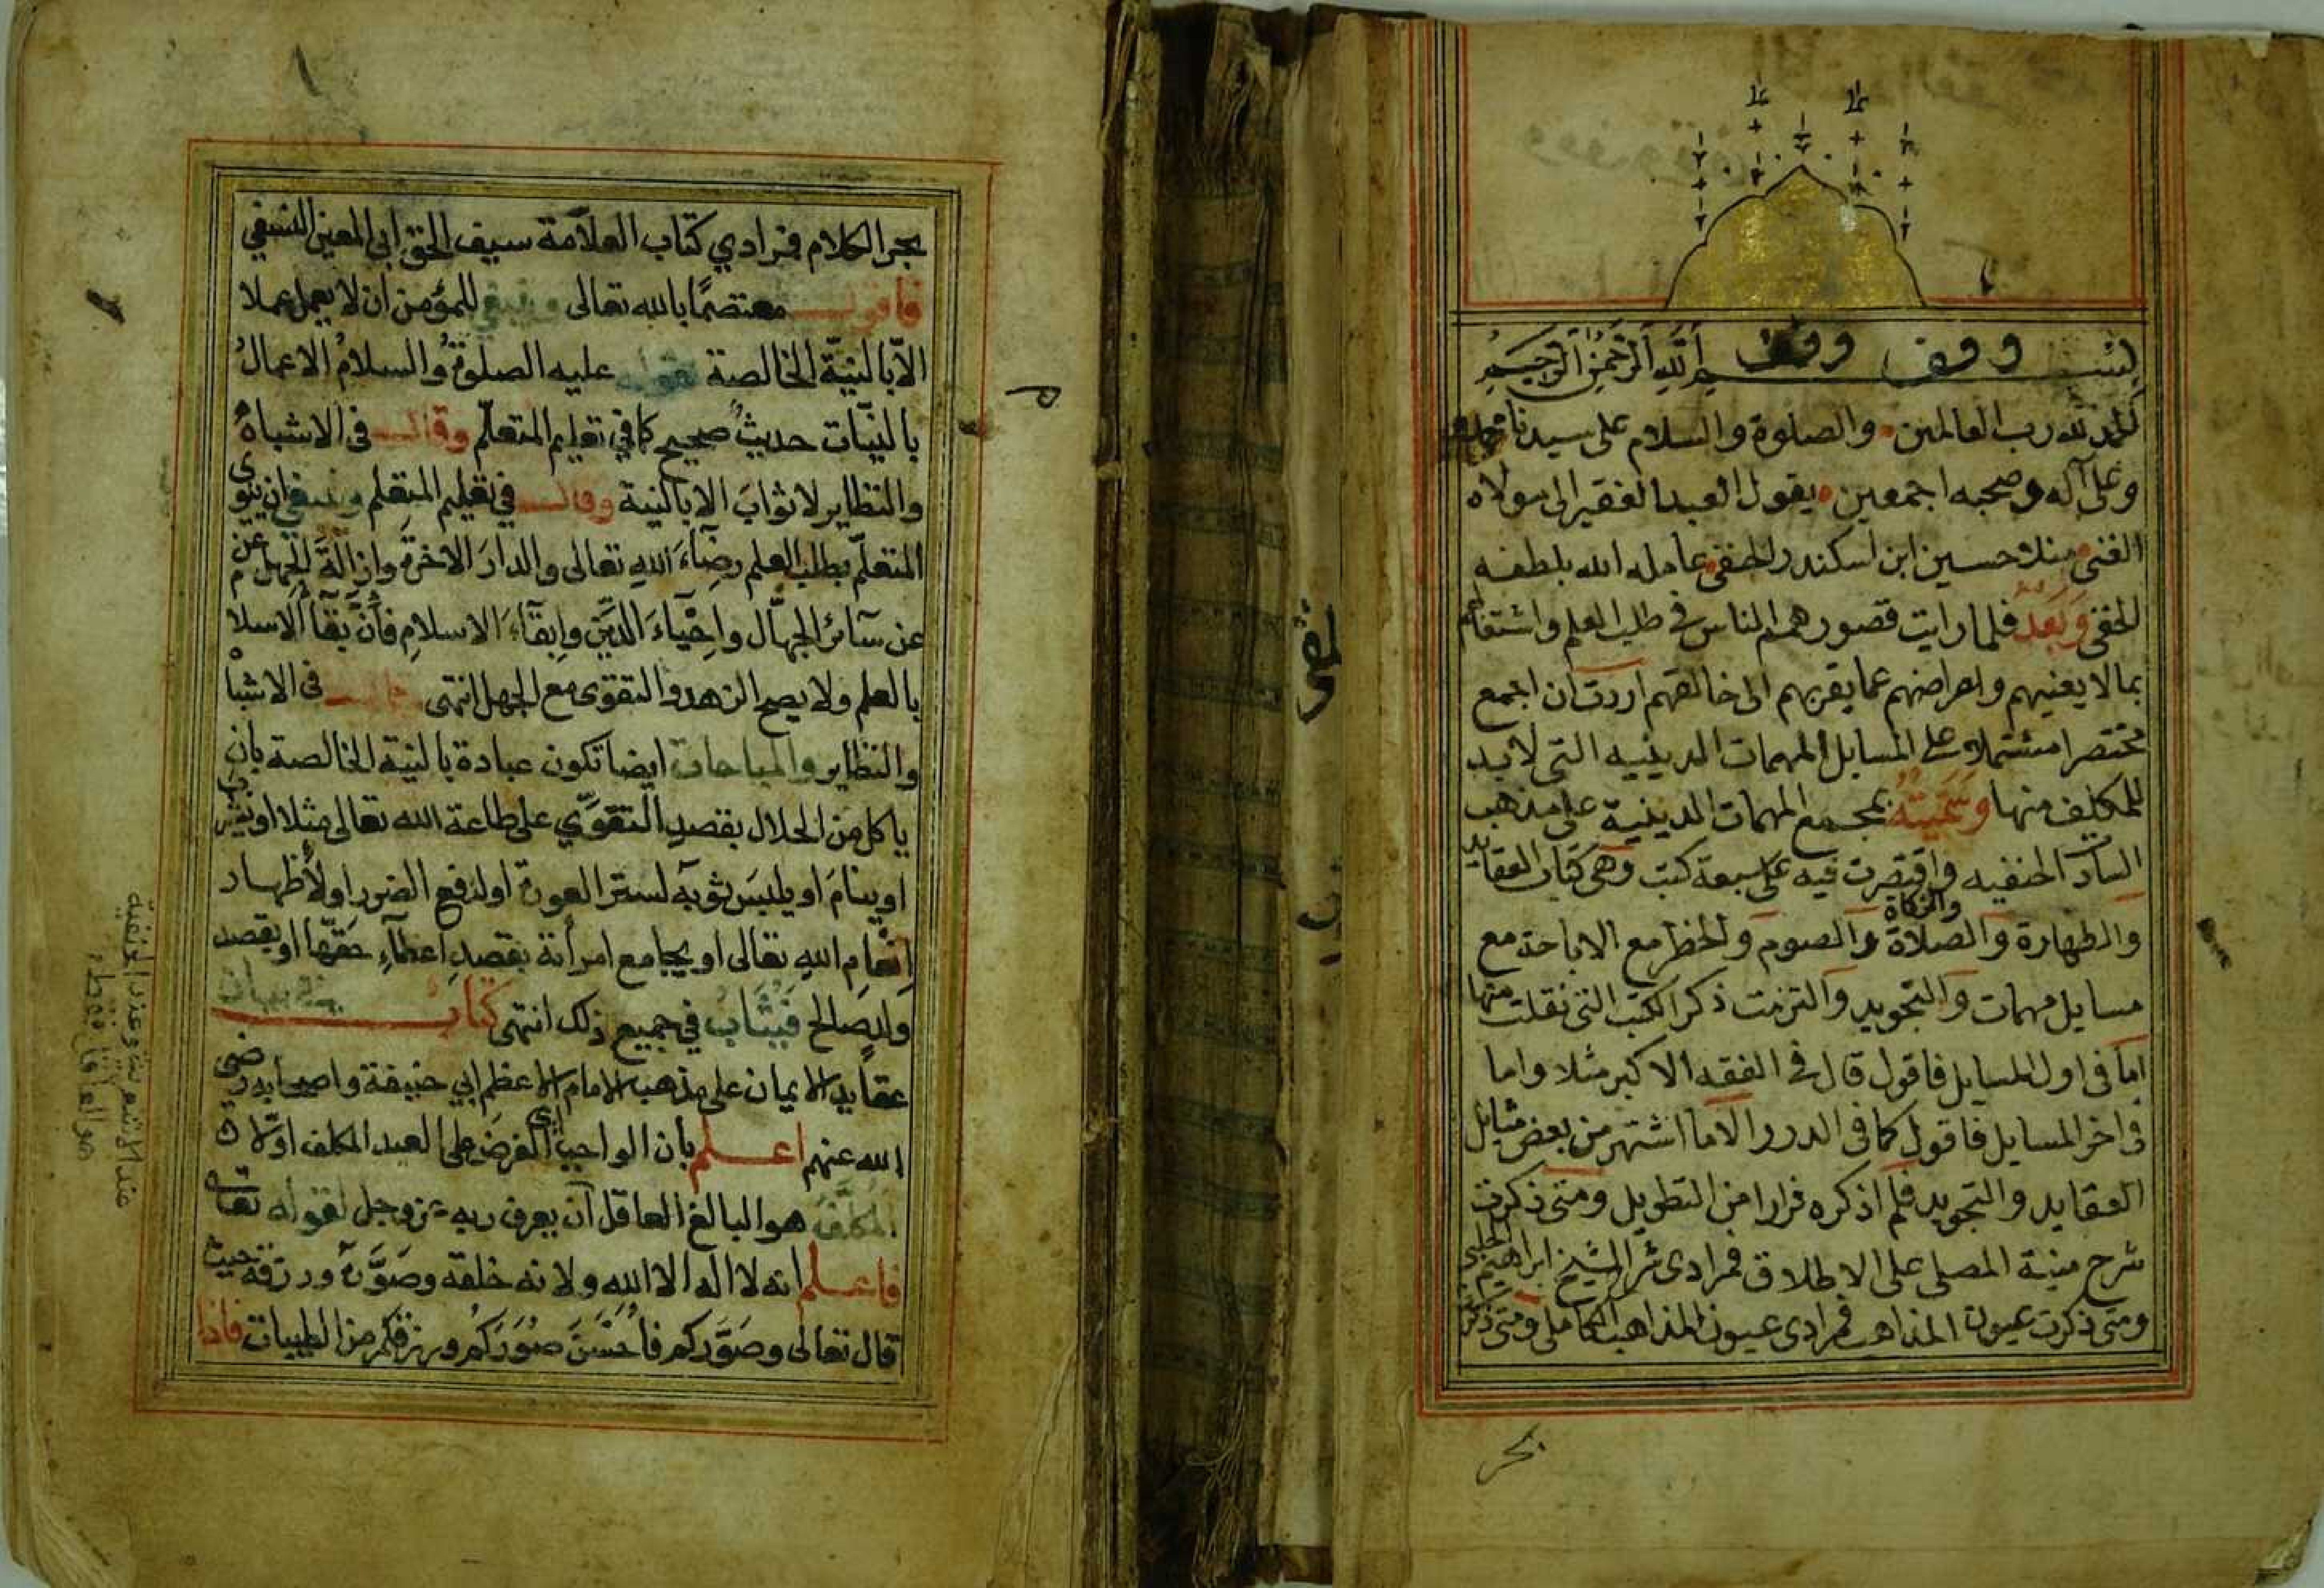 بســـم الله الرحمن الرحيم
وقف وقف
الحمد لله رب العالمين والصلوة والسلام على سيدنا محمد
وعلى آله وصحبه اجمعين يقول العبد الفقير الى مولاه
الغنى منلا حسين ابن اسكندر الحنفى عامله الله بلطفه
الخفى وبعد فلما رايت قصور همم الناس فى طلب العلم واشتغالهم
بما لا يعنيهم واعراضهم عما يقربهم الى خالقهم اردت ان اجمع
مختصرا مشتملا على المسايل المهمات الدينيه التى لا بد
للمكلف منها وسميته بمجمع المهمات الدينية على مذهب
السادات الحنفيه واقتصرت فيه على سبعة كتب وهى كتاب العقايد
والطهارة والصلاة والزكاة والصوم والحظر مع الاباحة مع
مسايل مهمات والتجويد والتزمت ذكر الكتب التى نقلت منها
اما فى اول المسايل فاقول قال فى الفقه الاكبر مثلا واما
فى اخر المسايل فاقول كما فى الدرر الا ما اشتهر من بعض مسايل
العقايد والتجويد فلم اذكره فرارا من التطويل ومتى ذكرت
شرح منية المصلى على الاطلاق فمرادى شرح الشيخ ابراهيم الحلبى
ومتى ذكرت عيون المذاهب فمرادى عيون المذاهب الكاملى ومتى ذكرت
بحر
بحر الكلام فمرادي كتاب العلامة سيف الحق ابى المعين النسفي
فاقول معتصمًا بالله تعالى وينبغي للمؤمن ان لا يعمل عملا
الّا بالنيّة الخالصة لقوله عليه الصلوة والسلامُ الاعمالُ
بالنيّات حديثٌ صحيح كما في تعليم المتعلّم وقال فى الاشباه
والنظاير لا ثوابَ الا بالنية وقال في تعليم المتعلم وينبغي ان ينوى
المتعلّم بطلب العلم رضآءَ اللهِ تعالى والدارَ الاخرةِ وازالةَ الجهل عن
عن سآئر الجهّال واحيآءَ الدّين وابقآءَ الاسلامِ فانّ بقآ الاسلا
بالعلم ولا يصح الزهد والتقوى مع الجهل انتهى قال فى الاشباه
والنظاير والمباحات ايضا تكون عبادة بالنية الخالصة بان
ياكل من الحلال بقصدِ التقوّي على طاعة الله تعالى مثلا او يشرب
او ينامَ او يلبسَ ثوبه لستر العورة او لدفع الضرر او لأظهار
انعامِ اللهِ تعالى او يجامع امرأته بقصدِ اعطآءِ حقّها او يقصد
والد صالح فيُثَاب في جميع ذلك انتهى كتاب
عقايد الايمان على مذهب الامام الاعظم ابي حنيفة واصحابه رضى
الله عنهم اعلم بأن الواجب اى الفرضَ على العبد المكلف اوّلا
المكلّفَ هو البالغ العاقل ان يعرف ربه عز وجل لقوله تعالى
فاعلم انه لا اله الا الله ولانه خلقه وصوّره ورزقه حيث
قال تعالى وصَوّركم فأحْسَنَ صُوَرَكُم ورزقكم من الطيبات فاذا